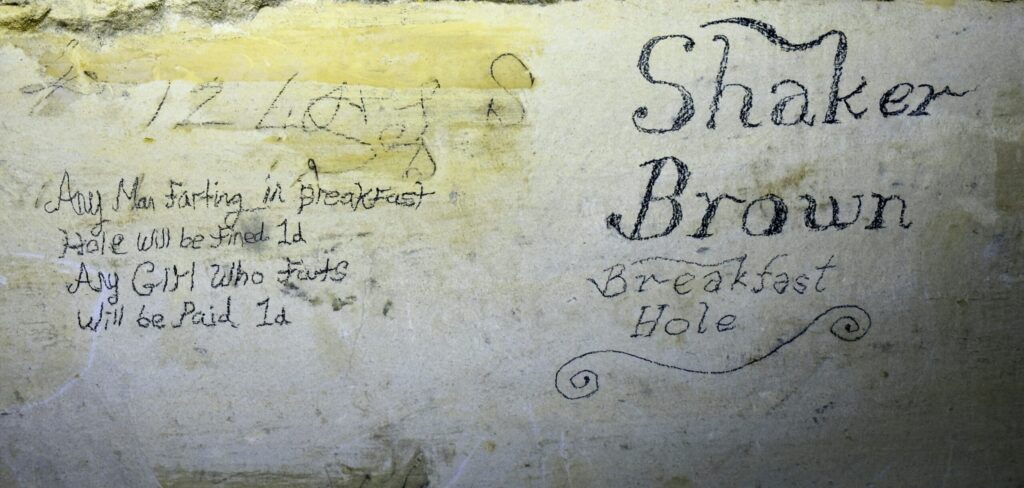 Any Man Farting in Breakfast
Hole Will be Fined 1d
Any Girl Who Farts
Will be Paid 1d
Shaker
Brown
Breakfast
Hole